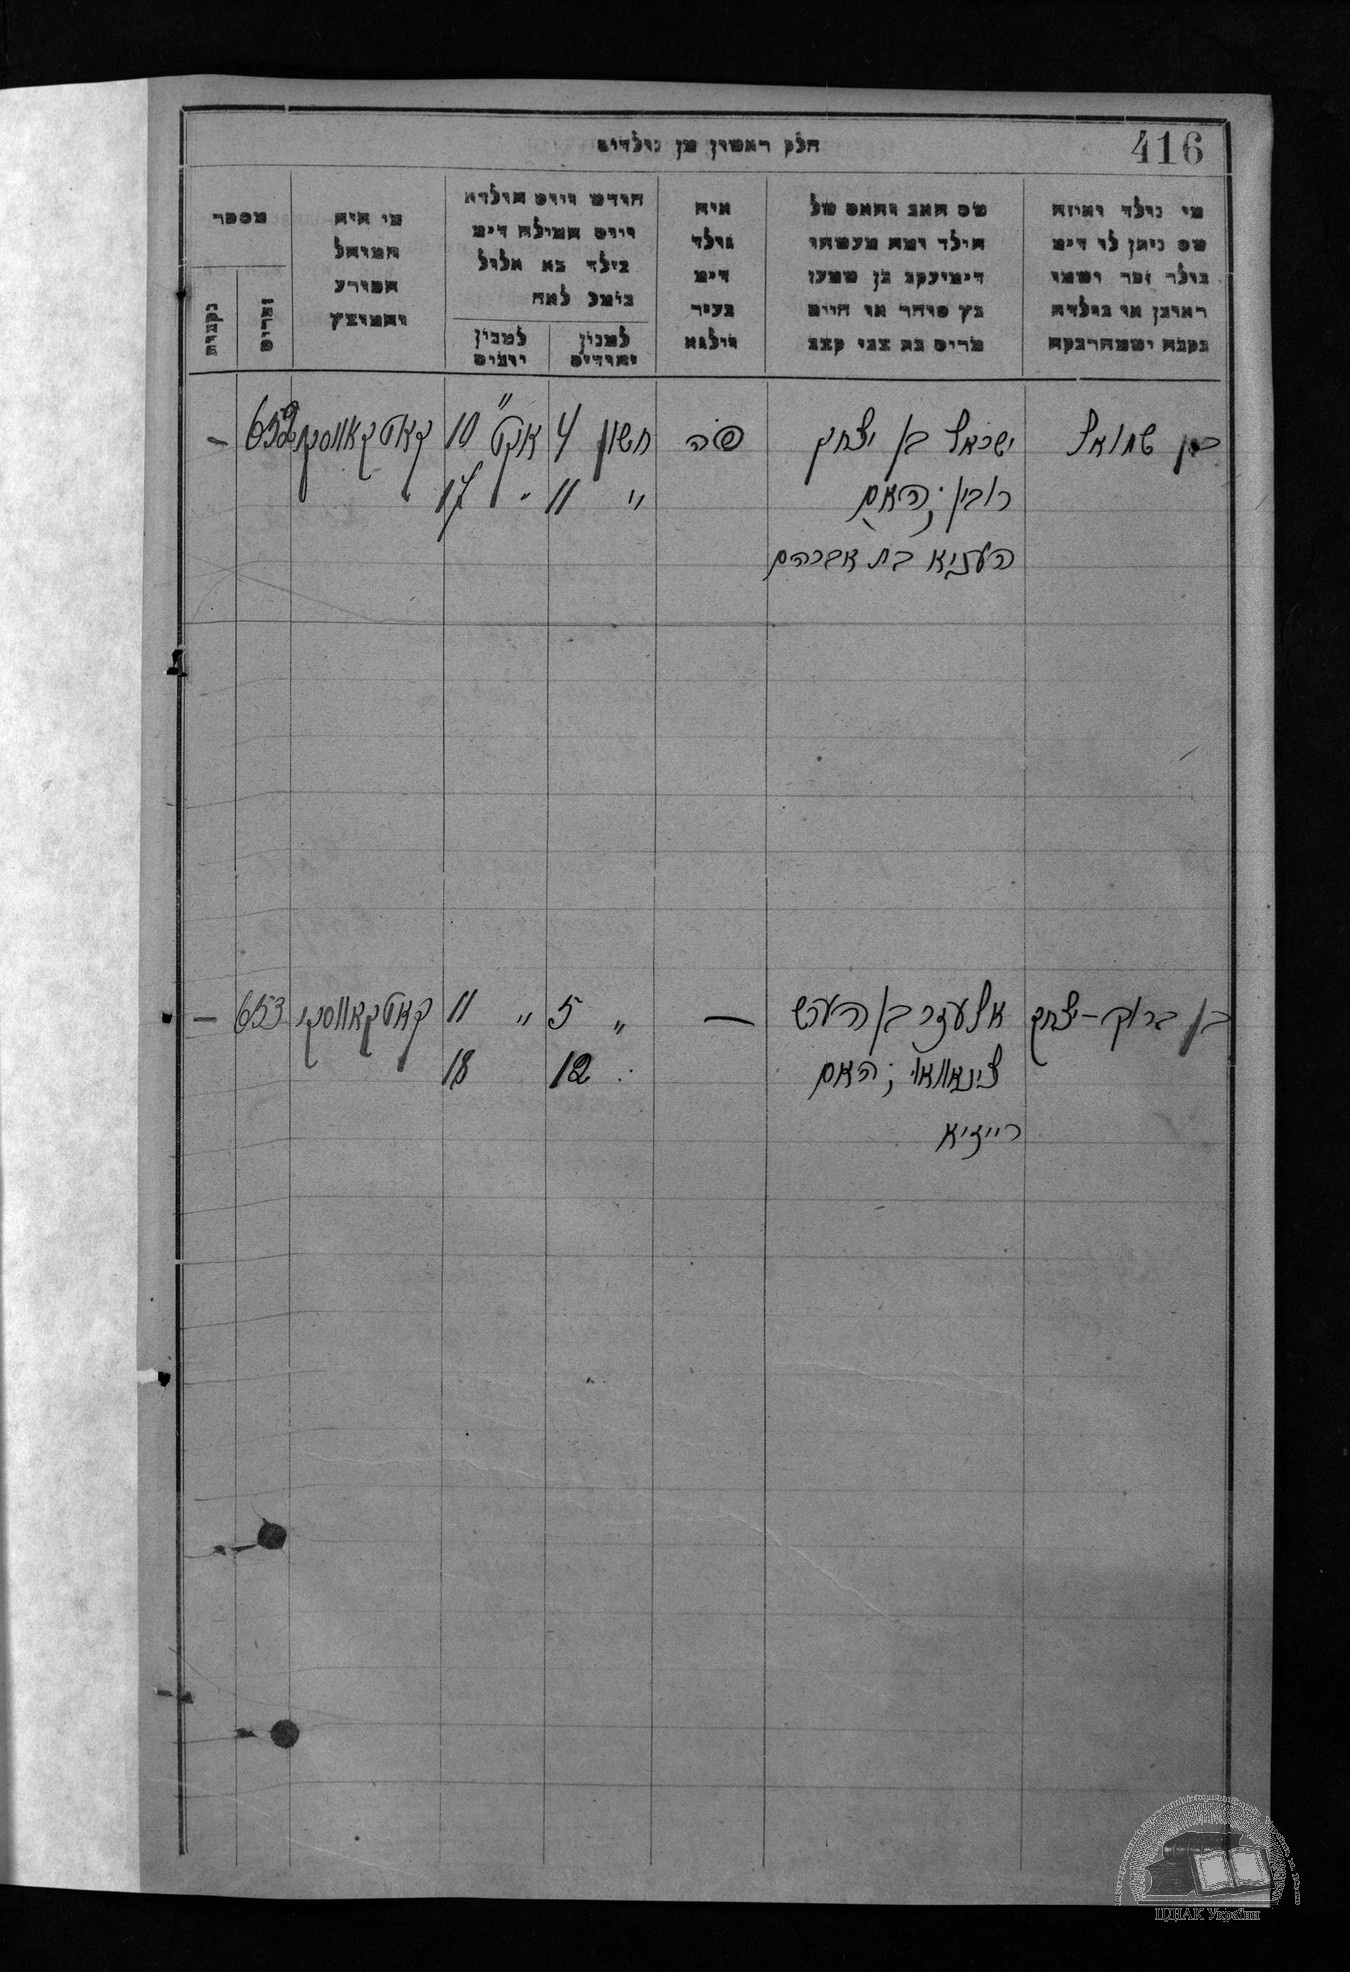 416
חלק ראשון מן נולדים
מי נולד ואיזה
שם ניתן לו דימ
בולד זכר ושמו
ראובן או בולדה
נקבה ושמה רבקה
שם האב והאם של
הילד ומה מעשהו
דימ יעקב בן שמעון
כץ סוחר או חיים
מרים בת צבי קצב
איה
נולד
דימ
בעיר
ווילנא
חודש ויום הולדת
ויום המילה דימ
בולד בא אלול
למנין יהודים
למנין יונים
מי היה
המוהל
הפורע
והמוצץ
מספר
זכרים
נקבות
בן שמואל
ישראל בן יצחק
רובין ; האם
העניא בת אברהם
פ״ה
חשון 4
״ 11
אקט״ 10
״ 17
קאטקאווסקי
652
—
בן ברוך-יצחק
אלעזר בן הערש
; האם
רייזיא
—
״ 5
״ 12
״ 11
18
קאטקאווסקי
653
—
ЦДІАК України